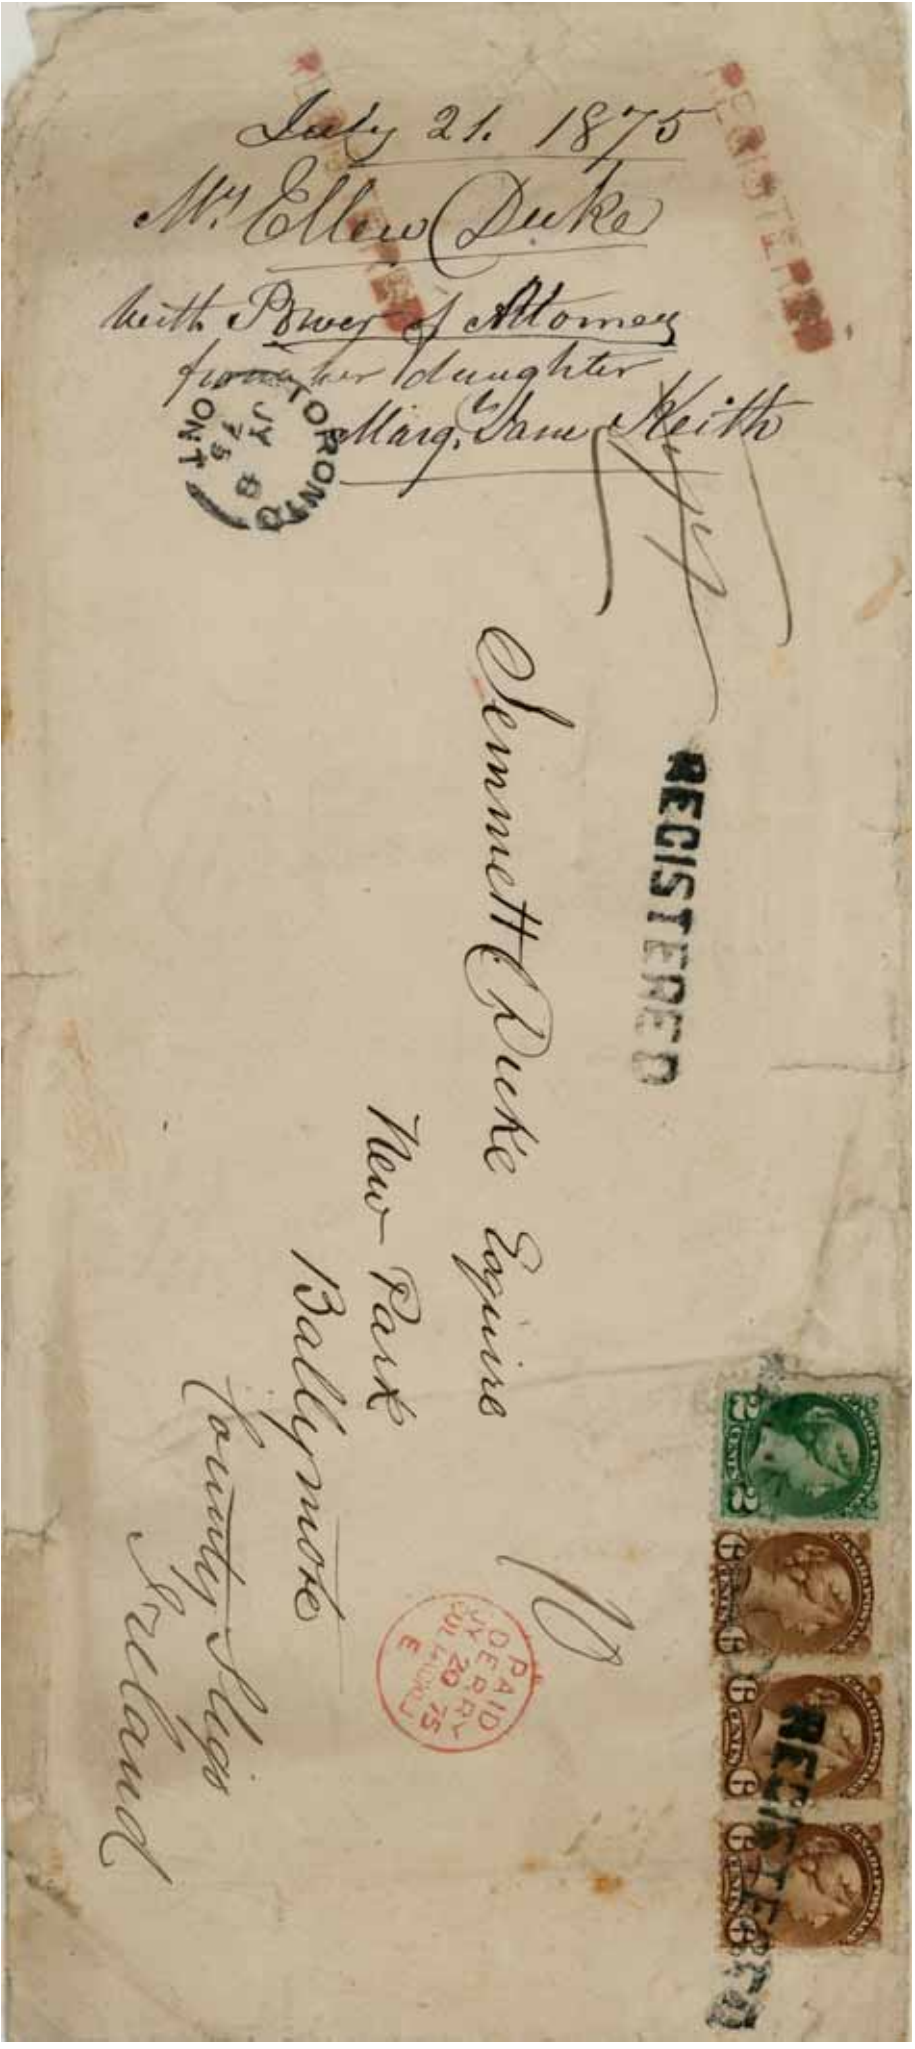 July 21. 1875
Mrs Ellen Duke
with Power of Attorney
from her daughter
Margt Jane Keith
REGISTERED
REGISTERED
TORONTO
JY 8
75
ONT
REGISTERED
Jemmett Duke Esquire
New Park
Ballymote
County Sligo
Ireland
PAID
DERRY
JY 20 75
E
2 CENTS 2
6 CENTS 6
6 CENTS 6
6 CENTS 6
REGISTERED